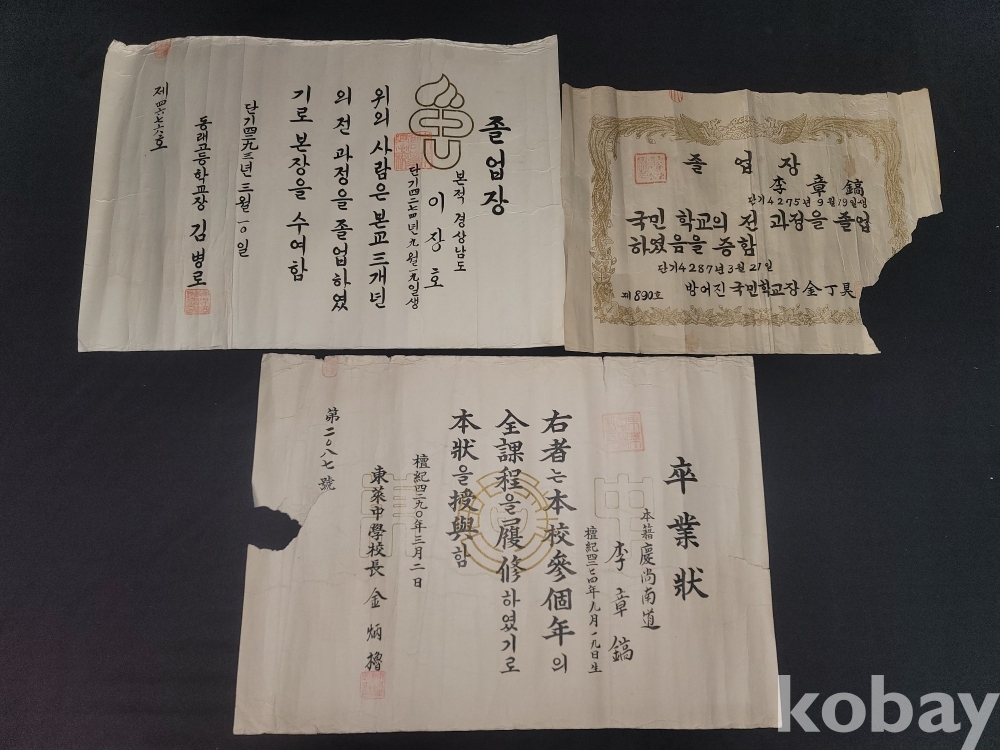 졸업장
본적 경상남도
이장호
단기四二七四年九월一九일생
위의 사람은 본교三개년
의 전 과정을 졸업하였
기로 본장을 수여함
단기四二九三년三월一〇일
동래고등학교장 김병로
졸업장
李章鎬
단기4275년9월19일생
국민학교의 전 과정을 졸업
하였음을 증함
단기4287년3월21일
방어진국민학교장 金丁昊
제890호
卒業狀
本籍慶尚南道
李章鎬
檀紀四二七四年九月一九日生
右者는本校參個年의
全課程을履修하였기로
本狀을授與함
檀紀四二九〇年三月二日
東萊中學校長 金炳櫓
第二〇八七號
kobay